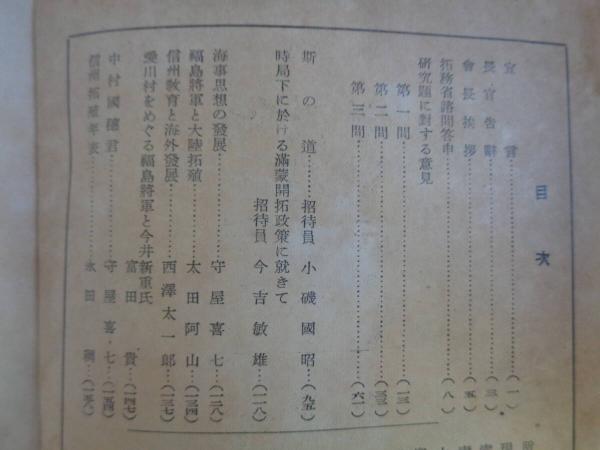 目次
宣言……(一)
長官告辭……(三)
會長挨拶……(五)
拓務省諮問答申……(八)
研究題に對する意見
第一問……(一三)
第二問……(三三)
第三問……(六一)
斯の道……招待員 小磯國昭…(九五)
時局下に於ける滿蒙開拓政策に就きて
招待員 今吉敏雄…(一一八)
海事思想の發展……守屋喜七…(一二八)
福島將軍と大陸拓殖……太田阿山…(一三四)
信州教育と海外發展……西澤太一郎…(一三七)
愛川村をめぐる福島將軍と今井新重氏
富田貴…(一四七)
中村國穗君……守屋喜七…(一五四)
信州拓殖年表……永田稠…(一五八)